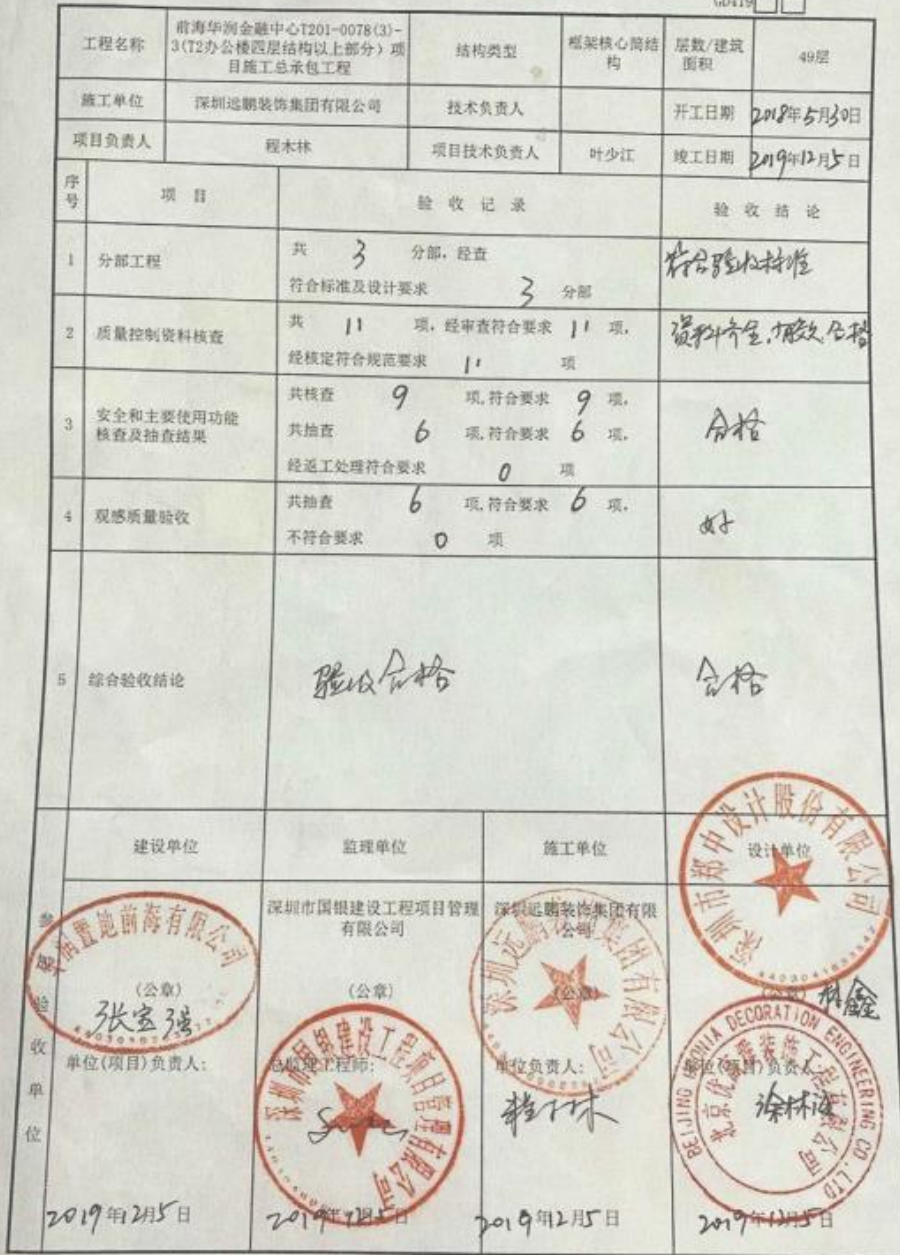 GD419
工程名称
前海华润金融中心T201-0078(3)-
3(T2办公楼四层结构以上部分)项
目施工总承包工程
结构类型
框架核心筒结
构
层数/建筑
面积
49层
施工单位
深圳远鹏装饰集团有限公司
技术负责人
开工日期
2018年5月30日
项目负责人
程木林
项目技术负责人
叶少江
竣工日期
2019年12月5日
序
号
项 目
验 收 记 录
验 收 结 论
1
分部工程
共 3 分部,经查
符合标准及设计要求 3 分部
符合验收标准
2
质量控制资料核查
共 11 项,经审查符合要求 11 项,
经核定符合规范要求 11 项
资料齐全,有效,合格
3
安全和主要使用功能
核查及抽查结果
共核查 9 项,符合要求 9 项,
共抽查 6 项,符合要求 6 项,
经返工处理符合要求 0 项
合格
4
观感质量验收
共抽查 6 项,符合要求 6 项,
不符合要求 0 项
好
5
综合验收结论
验收合格
合格
参
验
收
单
位
建设单位
监理单位
施工单位
设计单位
润置地前海有限公司
(公章)
张宝强
单位(项目)负责人:
2019年12月5日
深圳市国银建设工程项目管理
有限公司
(公章)
深圳市国银建设工程项目管理有限公司
总监理工程师:
2019年12月5日
深圳远鹏装饰集团有限
公司
深圳远鹏装饰集团有限公司
(公章)
单位负责人:
程木林
2019年12月5日
深圳市郑中设计股份有限公司
(公章)
林鑫
单位(项目)负责人
BEIJING DECORATION ENGINEERING CO.,LTD
北京优 装饰工程有限公司
2019年12月5日